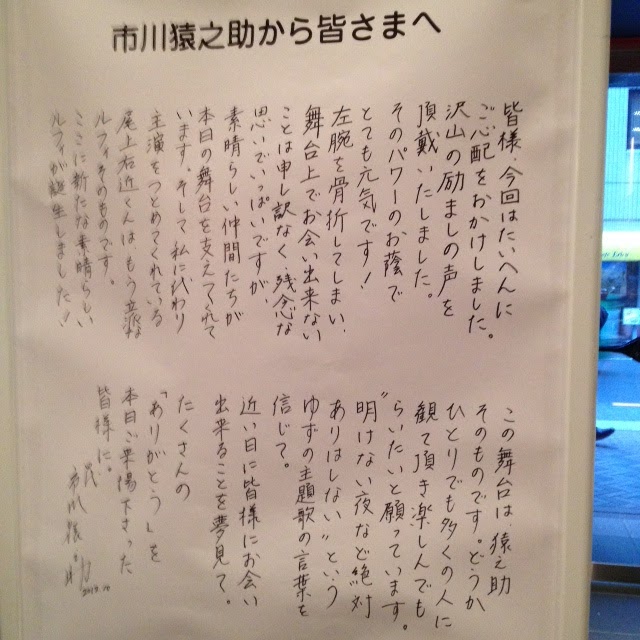 市川猿之助から皆さまへ
皆様、今回はたいへんに
ご心配をおかけしました。
沢山の励ましの声を
頂戴いたしました。
そのパワーのお蔭で
とても元気です！
左腕を骨折してしまい、
舞台上でお会い出来ない
ことは申し訳なく、残念な
思いでいっぱいですが、
素晴らしい仲間たちが
本日の舞台を支えてくれて
います。そして私に代わり
主演をつとめてくれている
尾上右近くんは、もう立派な
ルフィそのものです。
ここに新たな素晴らしい
ルフィが誕生しました！
この舞台は、猿之助
そのものです。どうか
ひとりでも多くの人に
観て頂き楽しんでも
らいたいと願っています。
"明けない夜など絶対
ありはしない"という
ゆずの主題歌の言葉を
信じて。
近い日に皆様にお会い
出来ることを夢見て。
たくさんの
「ありがとう」を
本日ご来場下さった
皆様に。
市川猿之助